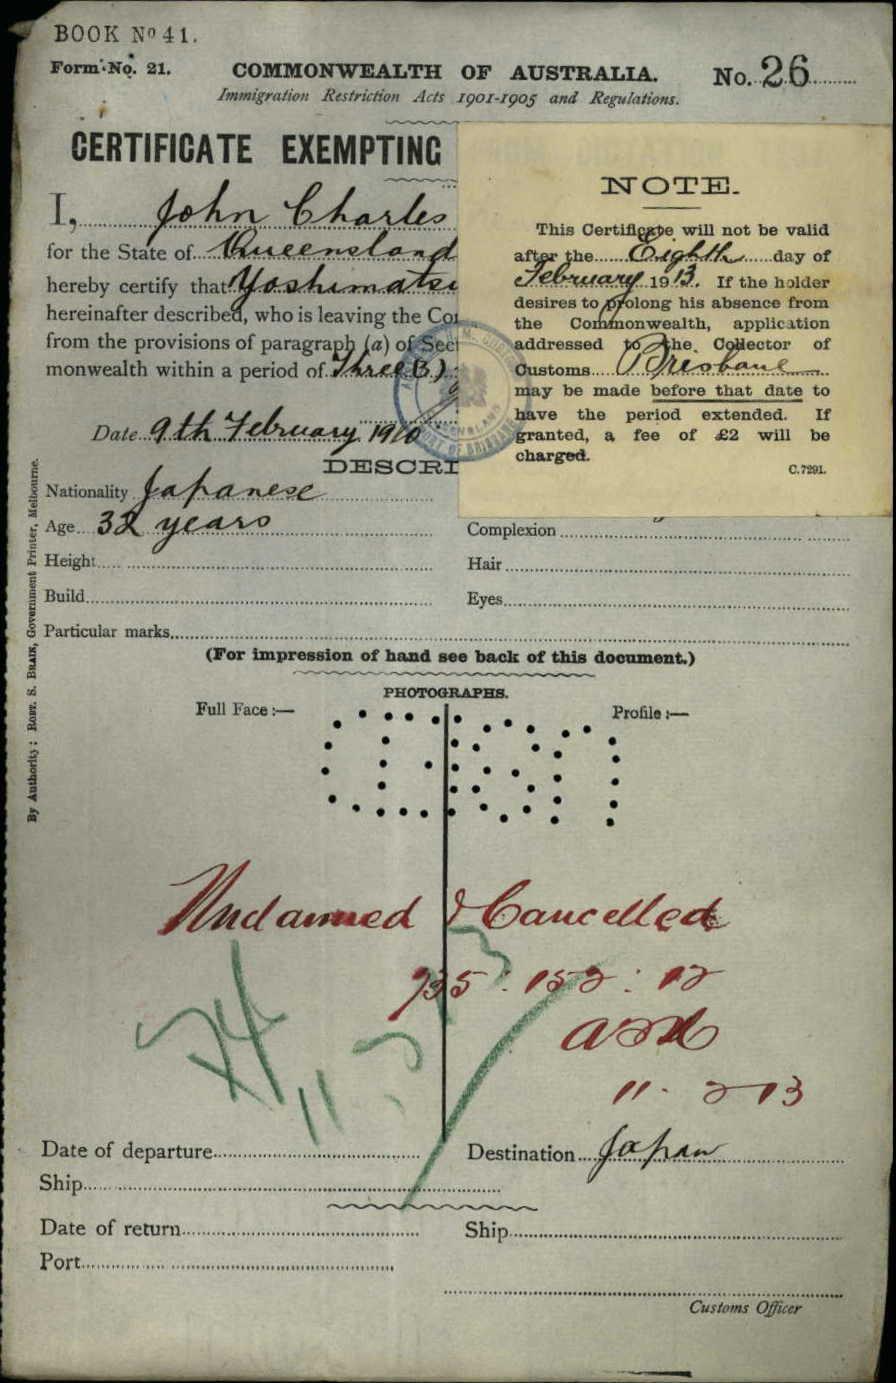 BOOK No 41.
Form No. 21.
COMMONWEALTH OF AUSTRALIA.
No. 26
Immigration Restriction Acts 1901-1905 and Regulations.
CERTIFICATE EXEMPTING
I, John Charles
for the State of Queensland
hereby certify that Yoshimats
hereinafter described, who is leaving the Co
from the provisions of paragraph (a) of Sec
monwealth within a period of Three (3)
Date 9th February 1910
DESCRI
NOTE.
This Certificate will not be valid
after the Eighth day of
February 1913. If the holder
desires to prolong his absence from
the Commonwealth, application
addressed to the Collector of
Customs Brisbane
may be made before that date to
have the period extended. If
granted, a fee of £2 will be
charged.
C.7291.
Nationality Japanese
Age 32 years
Height
Build
Particular marks
Complexion
Hair
Eyes
(For impression of hand see back of this document.)
PHOTOGRAPHS.
Full Face :—
Profile :—
By Authority: ROBT. S. BRAIN, Government Printer, Melbourne.
& Cancelled
11. 2 13
Date of departure
Destination Japan
Ship
Date of return
Ship
Port
Customs Officer